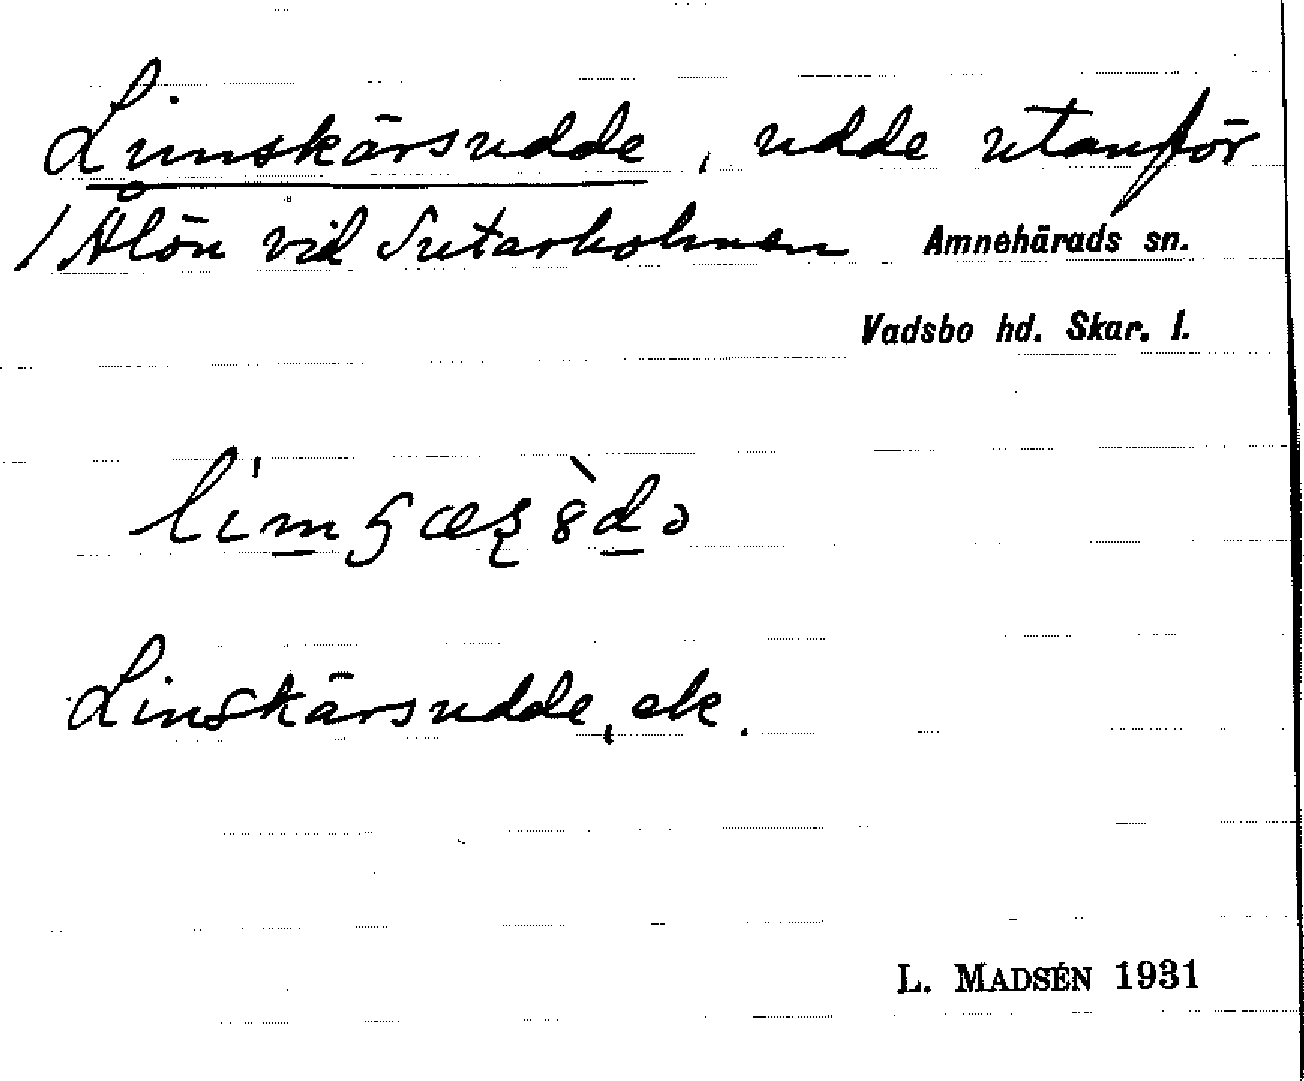 Linnskärsudde, udde utanför
/ Ålön vid Sutarholmen Amnehärads sn.
Vadsbo hd. Skar. l.
Linskärsudde, ek.
L. MADSÉN 1931